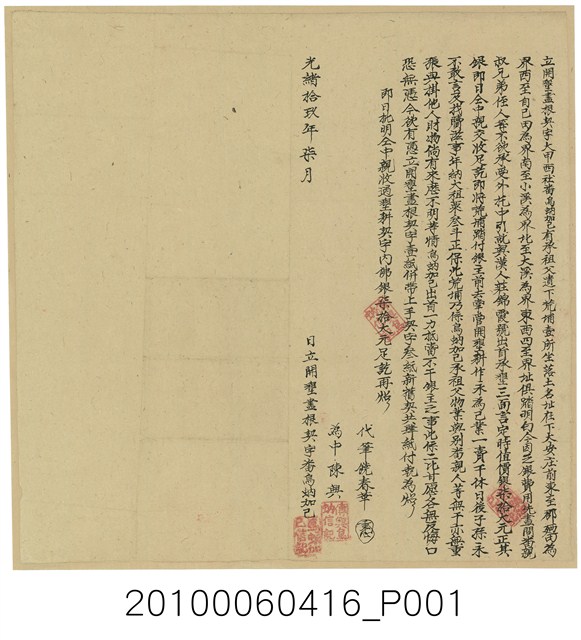 立開墾盡根契字大甲西社番烏蚋加己有承祖父遺下荒埔壹所坐落土名址在下大安庄前東至那為
界西至自己田為界南至小溪為界北至大溪為界東西四至界址俱踏明白今因乏銀費用先盡問番親
叔兄弟侄人等不欲承受外托中引就與漢人莊錦霞號出首承墾三面言定時值價銀柒拾大元正其
銀即日仝中親交收足訖即將荒埔踏付銀主前去掌管開墾耕作永為己業一賣千休日後子孫永
不敢言及找贖滋事年納大租粟叁斗正保此荒埔乃係烏蚋加己承祖父物業與別番親人等無干亦無重
張典掛他人財物倘有來歷不明等情烏蚋加己出首一力抵當不干銀主之事此係二比甘愿各無反悔口
恐無憑今欲有憑立開墾盡根契字壹紙併帶上手契字叁紙新舊契共肆紙付執為炤
即日批明仝中親收過墾耕契字內佛銀柒拾大元足訖再炤
代筆饒春華
為中陳興
光緒拾玖年柒月 日立開墾盡根契字番烏蚋加己
20100060416_P001